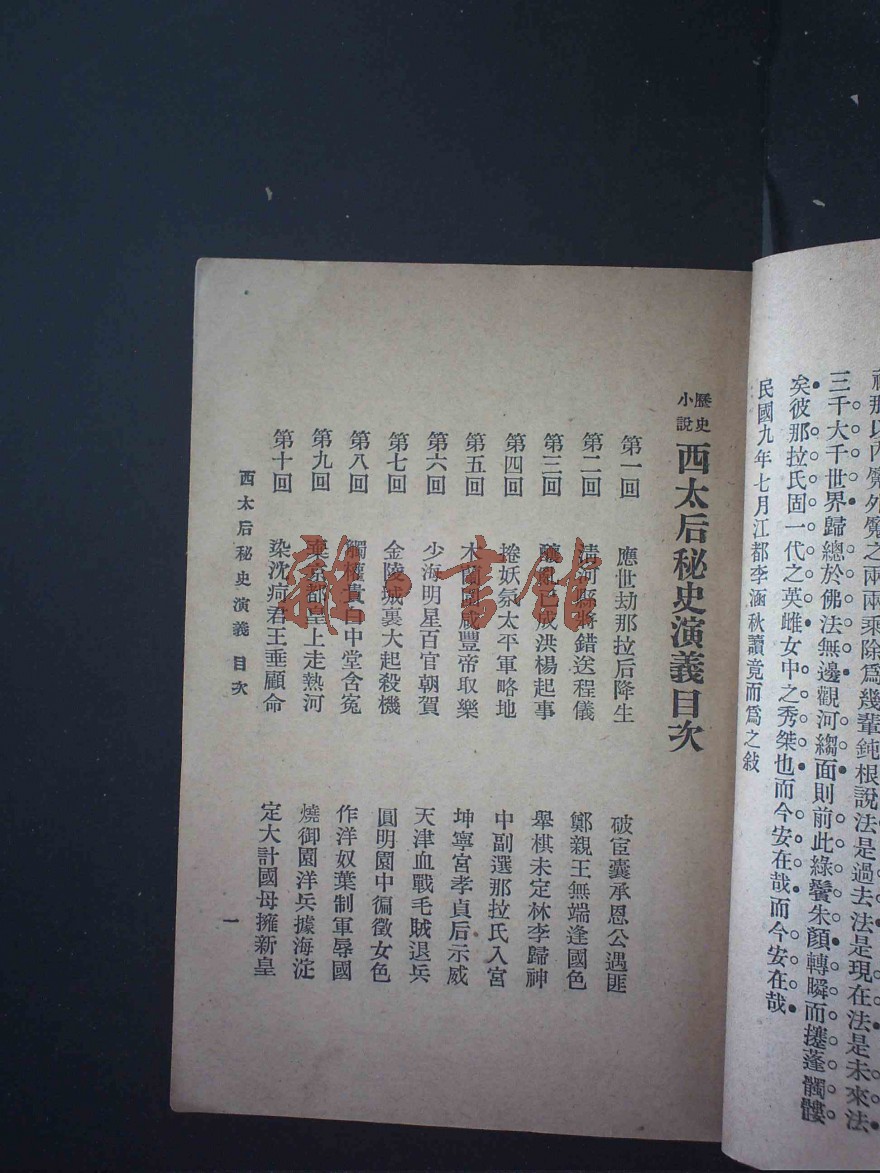 三千大千世界歸總於佛法無邊觀河縐面則前此綠鬢朱顏轉瞬而攓蓬髑髏
矣彼那拉氏固一代之英雌女中之秀桀也而今安在哉而今安在哉
民國九年七月江都李涵秋讀竟而爲之敍
歷史小說 西太后秘史演義目次
第一回 應世劫那拉后降生 破宦囊承恩公遇匪
第二回 清河縣將錯送程儀 鄭親王無端逢國色
第三回 釀亂已成洪楊起事 舉棋未定林李歸神
第四回 捲妖氛太平軍略地 中副選那拉氏入宮
第五回 木蘭圍咸豐帝取樂 坤寧宮孝貞后示威
第六回 少海明星百官朝賀 天津血戰毛賊退兵
第七回 金陵城裏大起殺機 圓明園中徧徵女色
第八回 觸權貴白中堂含冤 作洋奴葉制軍辱國
第九回 棄京都皇上走熱河 燒御園洋兵據海淀
第十回 染沈疴君王垂顧命 定大計國母擁新皇
西太后秘史演義 目次
一
雜·書館